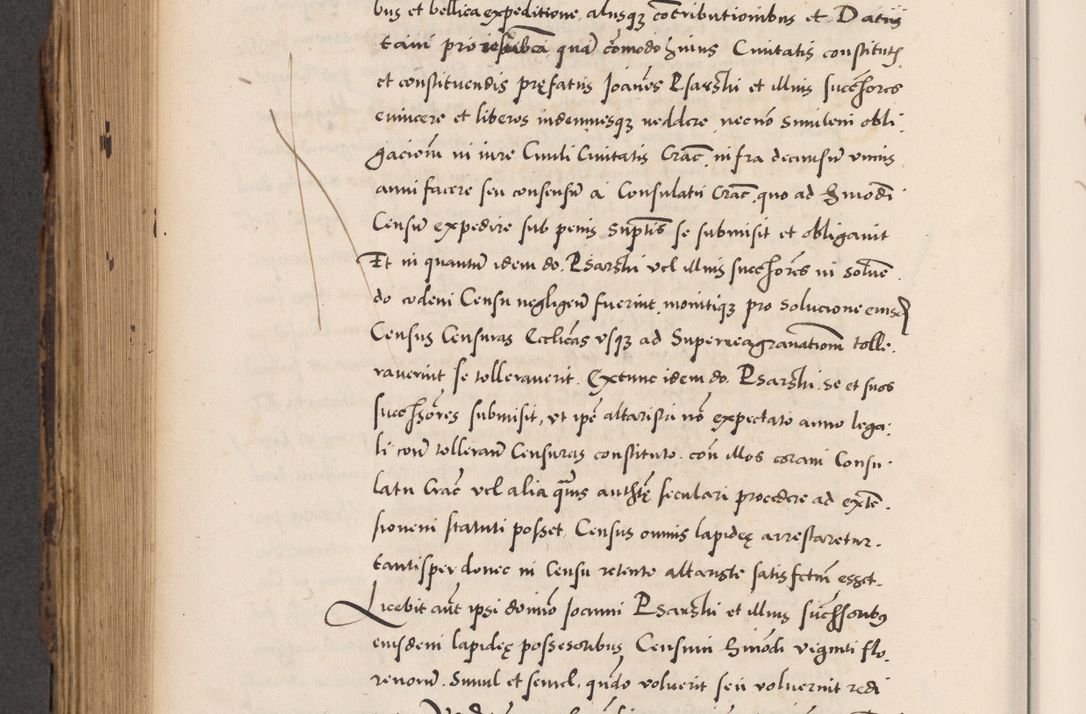 bus et bellica expeditione, aliisq3 cõtributionibus et Datiis
tam pro quã cõmodo huius Civitatis constitutis
et constituendis pręfatus Joañes Psarski et illius successores
evincere et liberos indemnesq3 reddere, necnõ similem obli
gacionẽ in iure Civili Civitatis Crać, infra decursũ unius
anni facere seu consensũ à Consulatu Crać, quo ad hmõdi
Censũ expedire sub penis suprãptis se submisit et obligavit
Et in quantũ idem do. Psarski vel illius successores in solvẽ
do eodem Censu negligeñ fuerint, monitiq3 pro solucione eiusd
Census Censuras Ecclicãs usq3 ad Superreagravationẽ tolle
raverint se tolleraverit. Extunc idem do. Psarski se et suos
successores submisit, ut ipẽ altarista nõ expectato anno lega
li cont tolleranẽ Censuras constituto. cõn illos coram Consu
latu Crać vel alia quãvis authẽ seculari procedere ad extẽ
sionem statuti posset. Census omnis lapideę arrestaretur
tantisper donec in Censu retento altariste satisfctũ esset
Licebit aũt ipsi domino Joanni Psarski et illius successoribus
eiusdem lapideę possesoribus Censum hmõdi viginti flo
renorũ. Simul et semel, quãdo voluerit seu voluerint redi